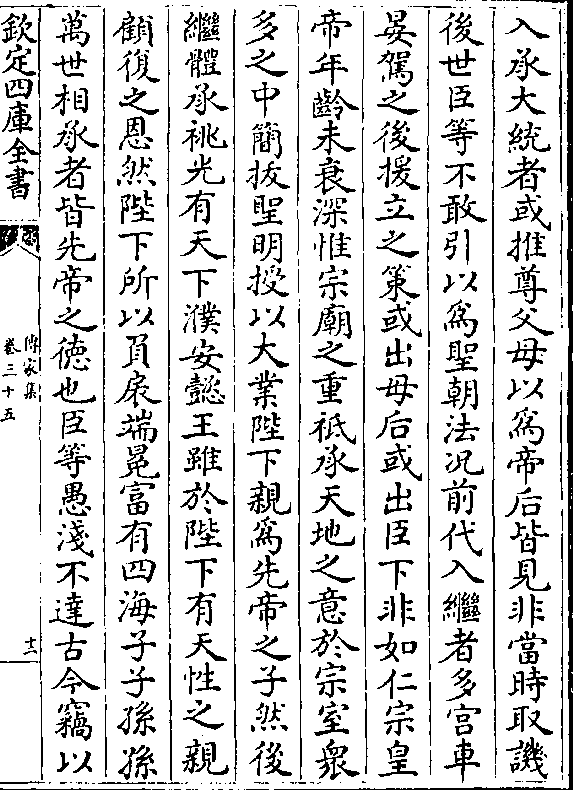 入承大統者或推尊父母以為帝后皆見非當時取譏
後世臣等不敢引以為聖朝法况前代入繼者多宮車
晏駕之後援立之策或出母后或出臣下非如仁宗皇
帝年齡未衰深惟宗廟之重祗承天地之意於宗室衆
多之中簡拔聖明授以大業陛下親為先帝之子然後
繼體承祧光有天下濮安懿王雖於陛下有天性之親
顧復之恩然陛下所以負扆端冕富有四海子子孫孫
萬世相承者皆先帝之徳也臣等愚淺不達古今竊以
欽定四庫全書
傳家集
卷三十五
十二